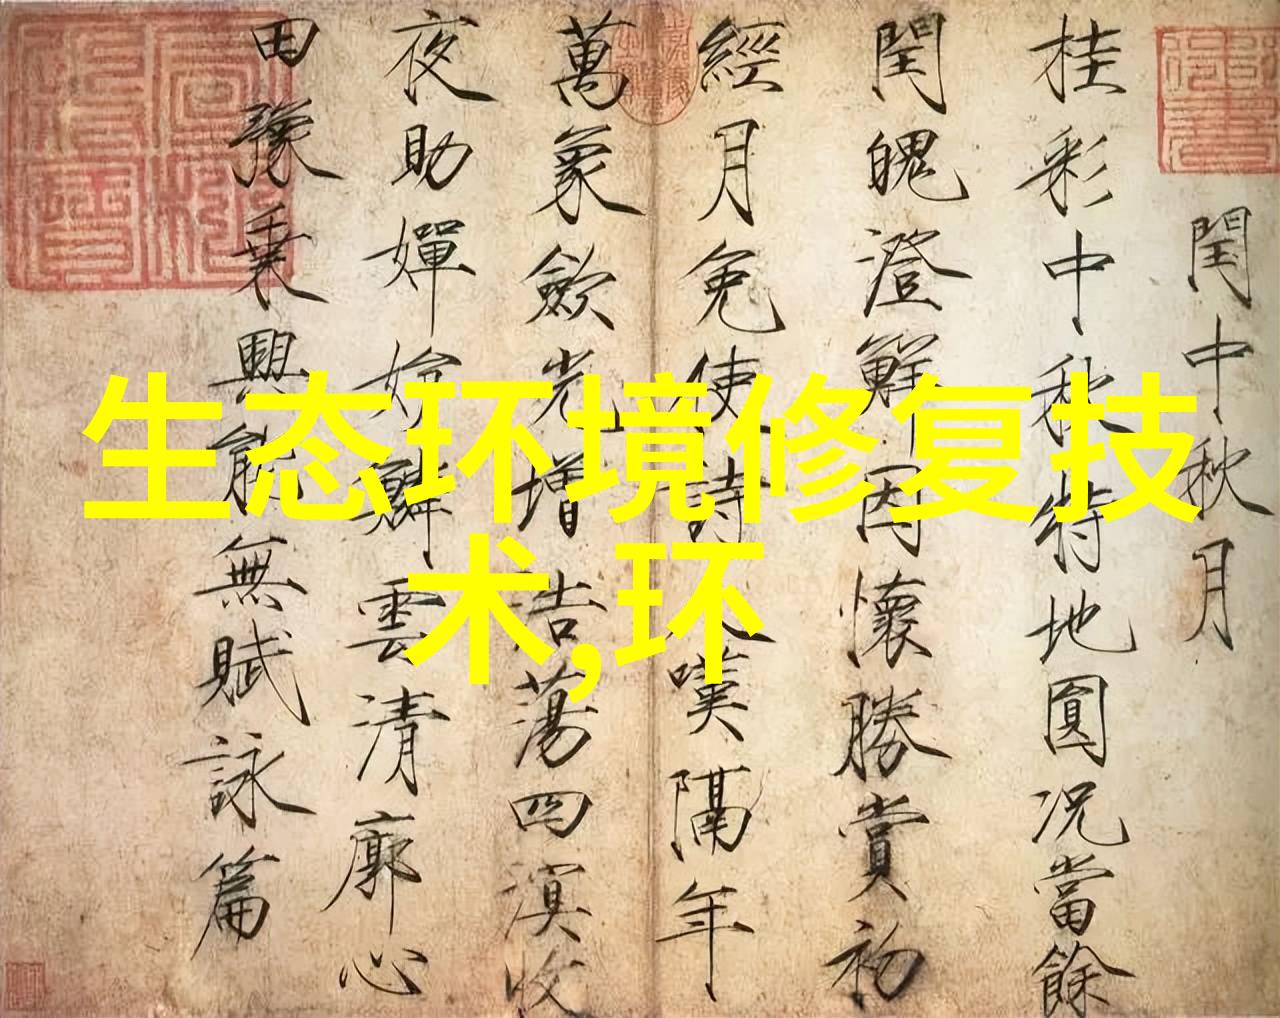 生态环境修复技
术,环
閏中秋月
桂彩中秋特地圓况當餘
閏魄澄鮮因懷勝賞初
經月免使詩人嘆隔年
萬象斂光增浩蕩四溟收
夜助嬋娟鱗雲清廓心
田豫乗興能無賦詠篇